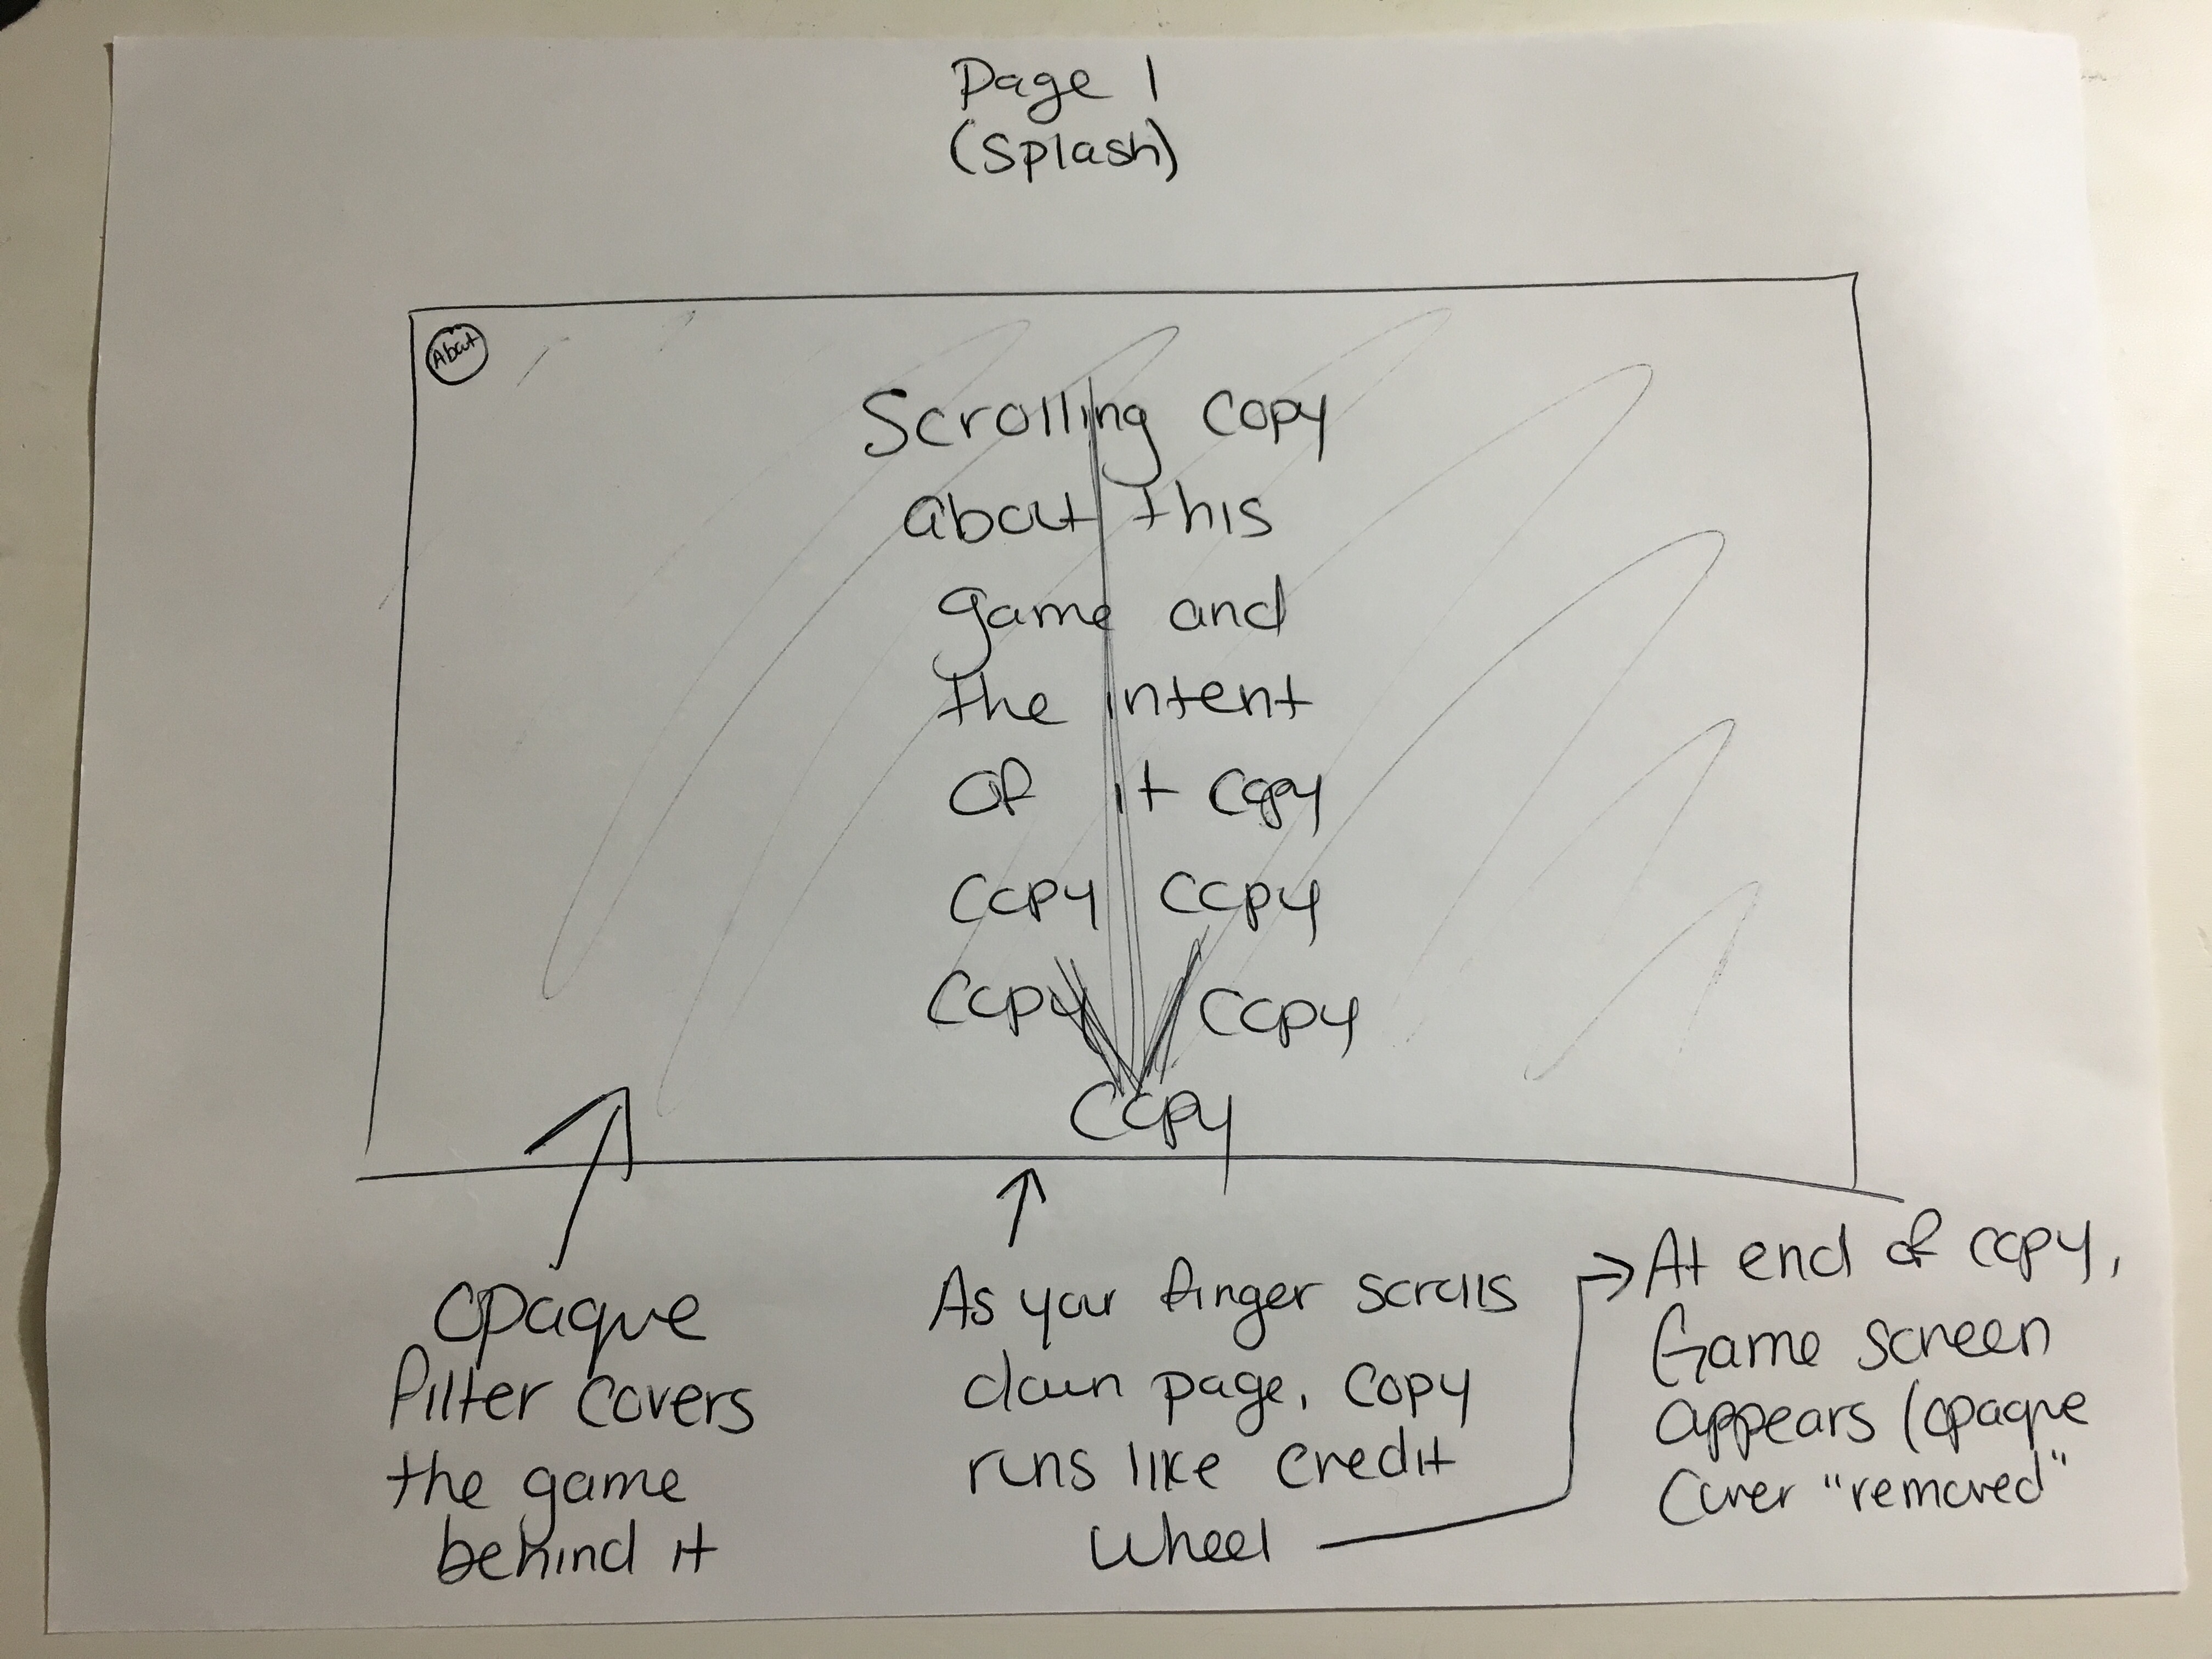 Page 1
(Splash)
About
Scrolling copy
about this
game and
the intent
of it copy
copy copy
copy copy
copy
opaque
filter covers
the game
behind it
As your finger scrolls
down page, copy
runs like credit
wheel
At end of copy,
Game screen
appears (opaque
cover "removed"